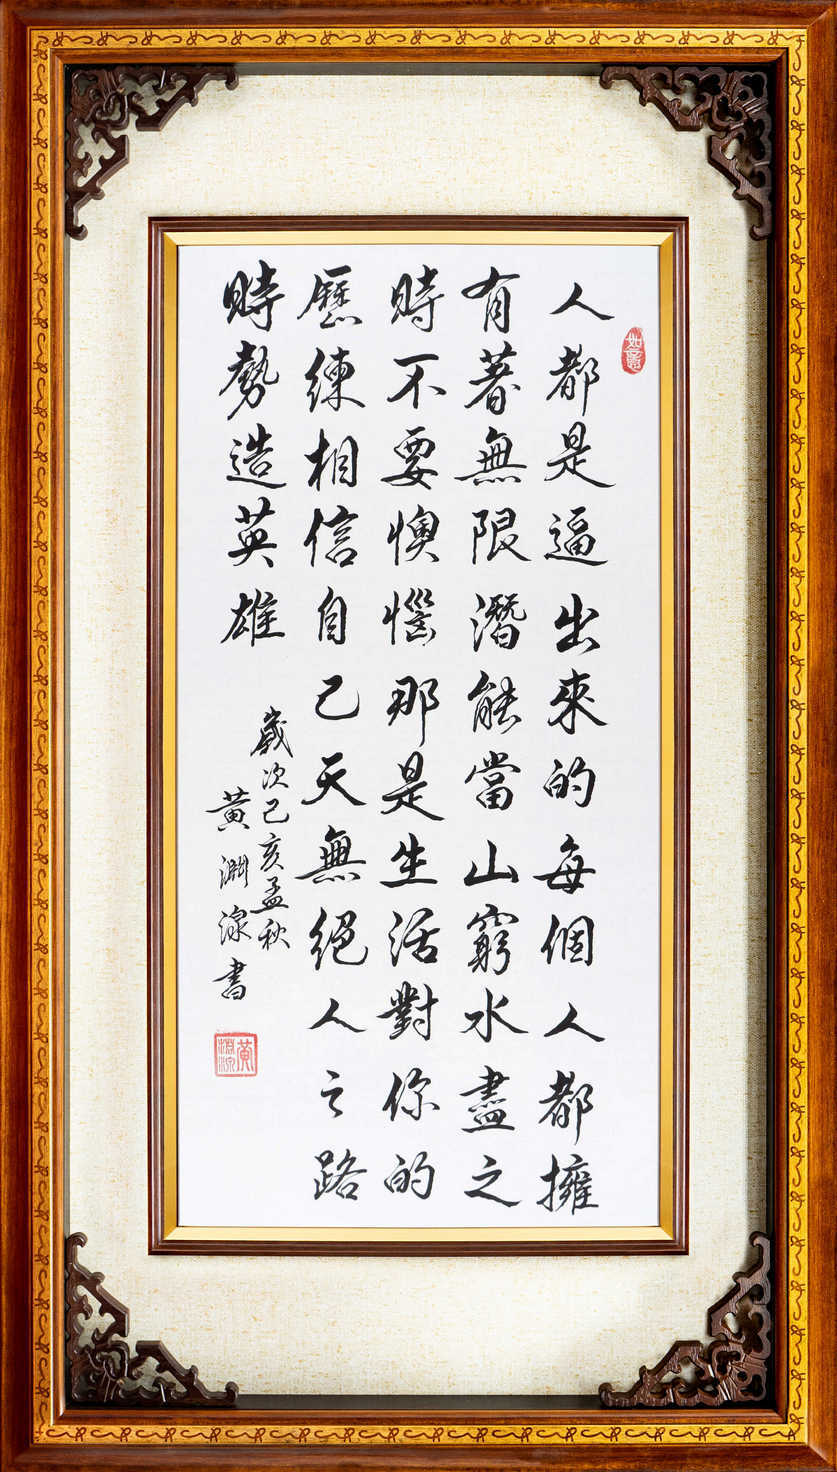 如意
人都是逼出來的每個人都擁
有著無限潛能當山窮水盡之
時不要懊惱那是生活對你的
歷練相信自己天無絕人之路
時勢造英雄
歲次己亥孟秋
黃淵湶書